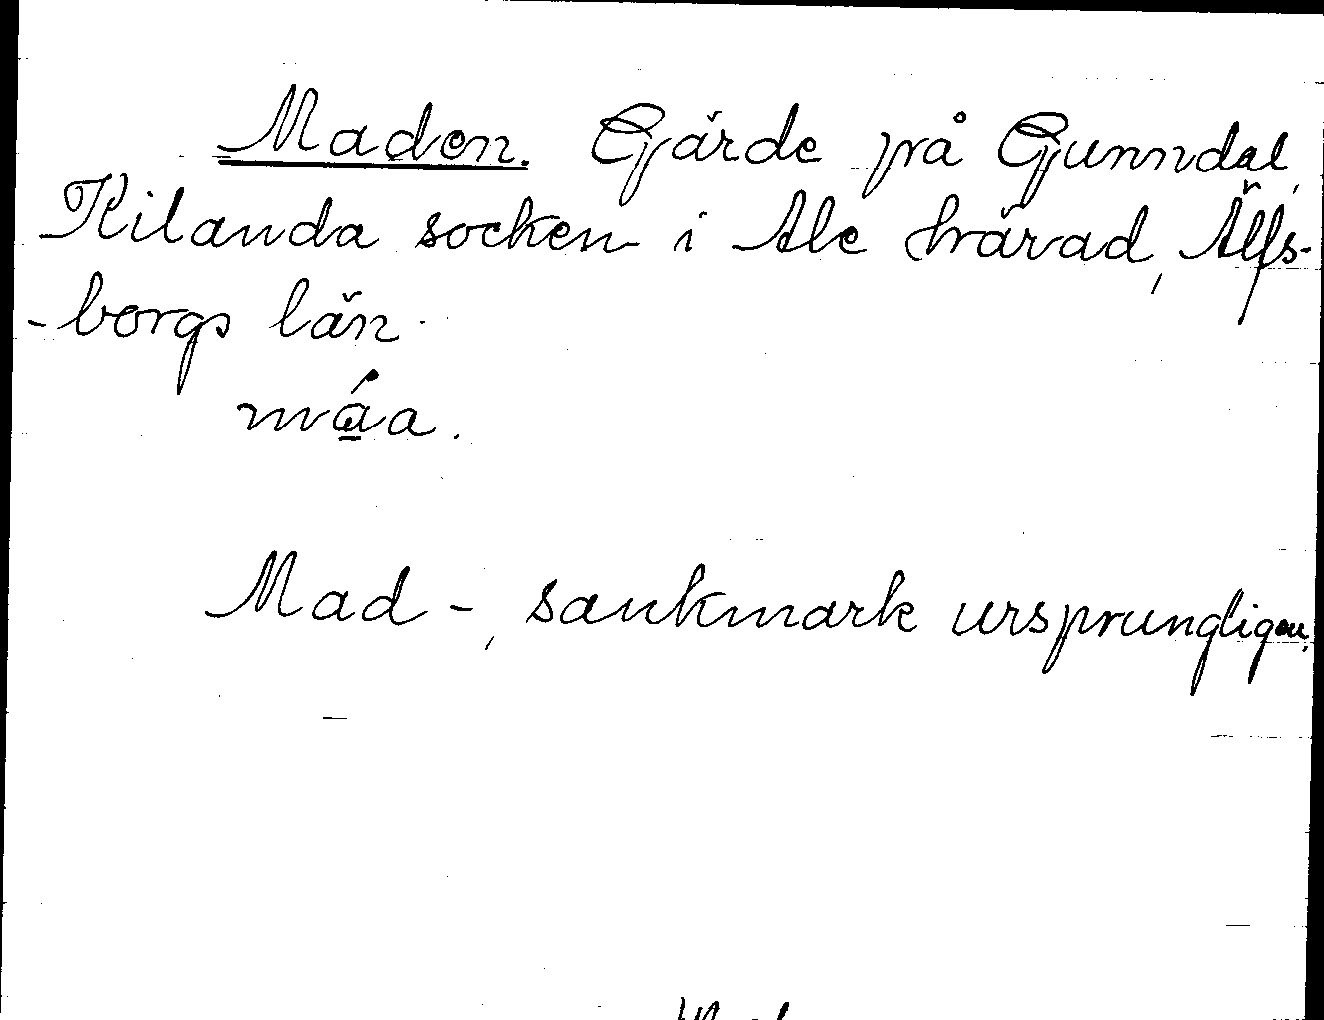 Maden. Gärde på Gunndal,
Kilanda socken i Ale härad, Älfs-
-borgs län.
má̱a.
Mad -, sankmark ursprungligen.